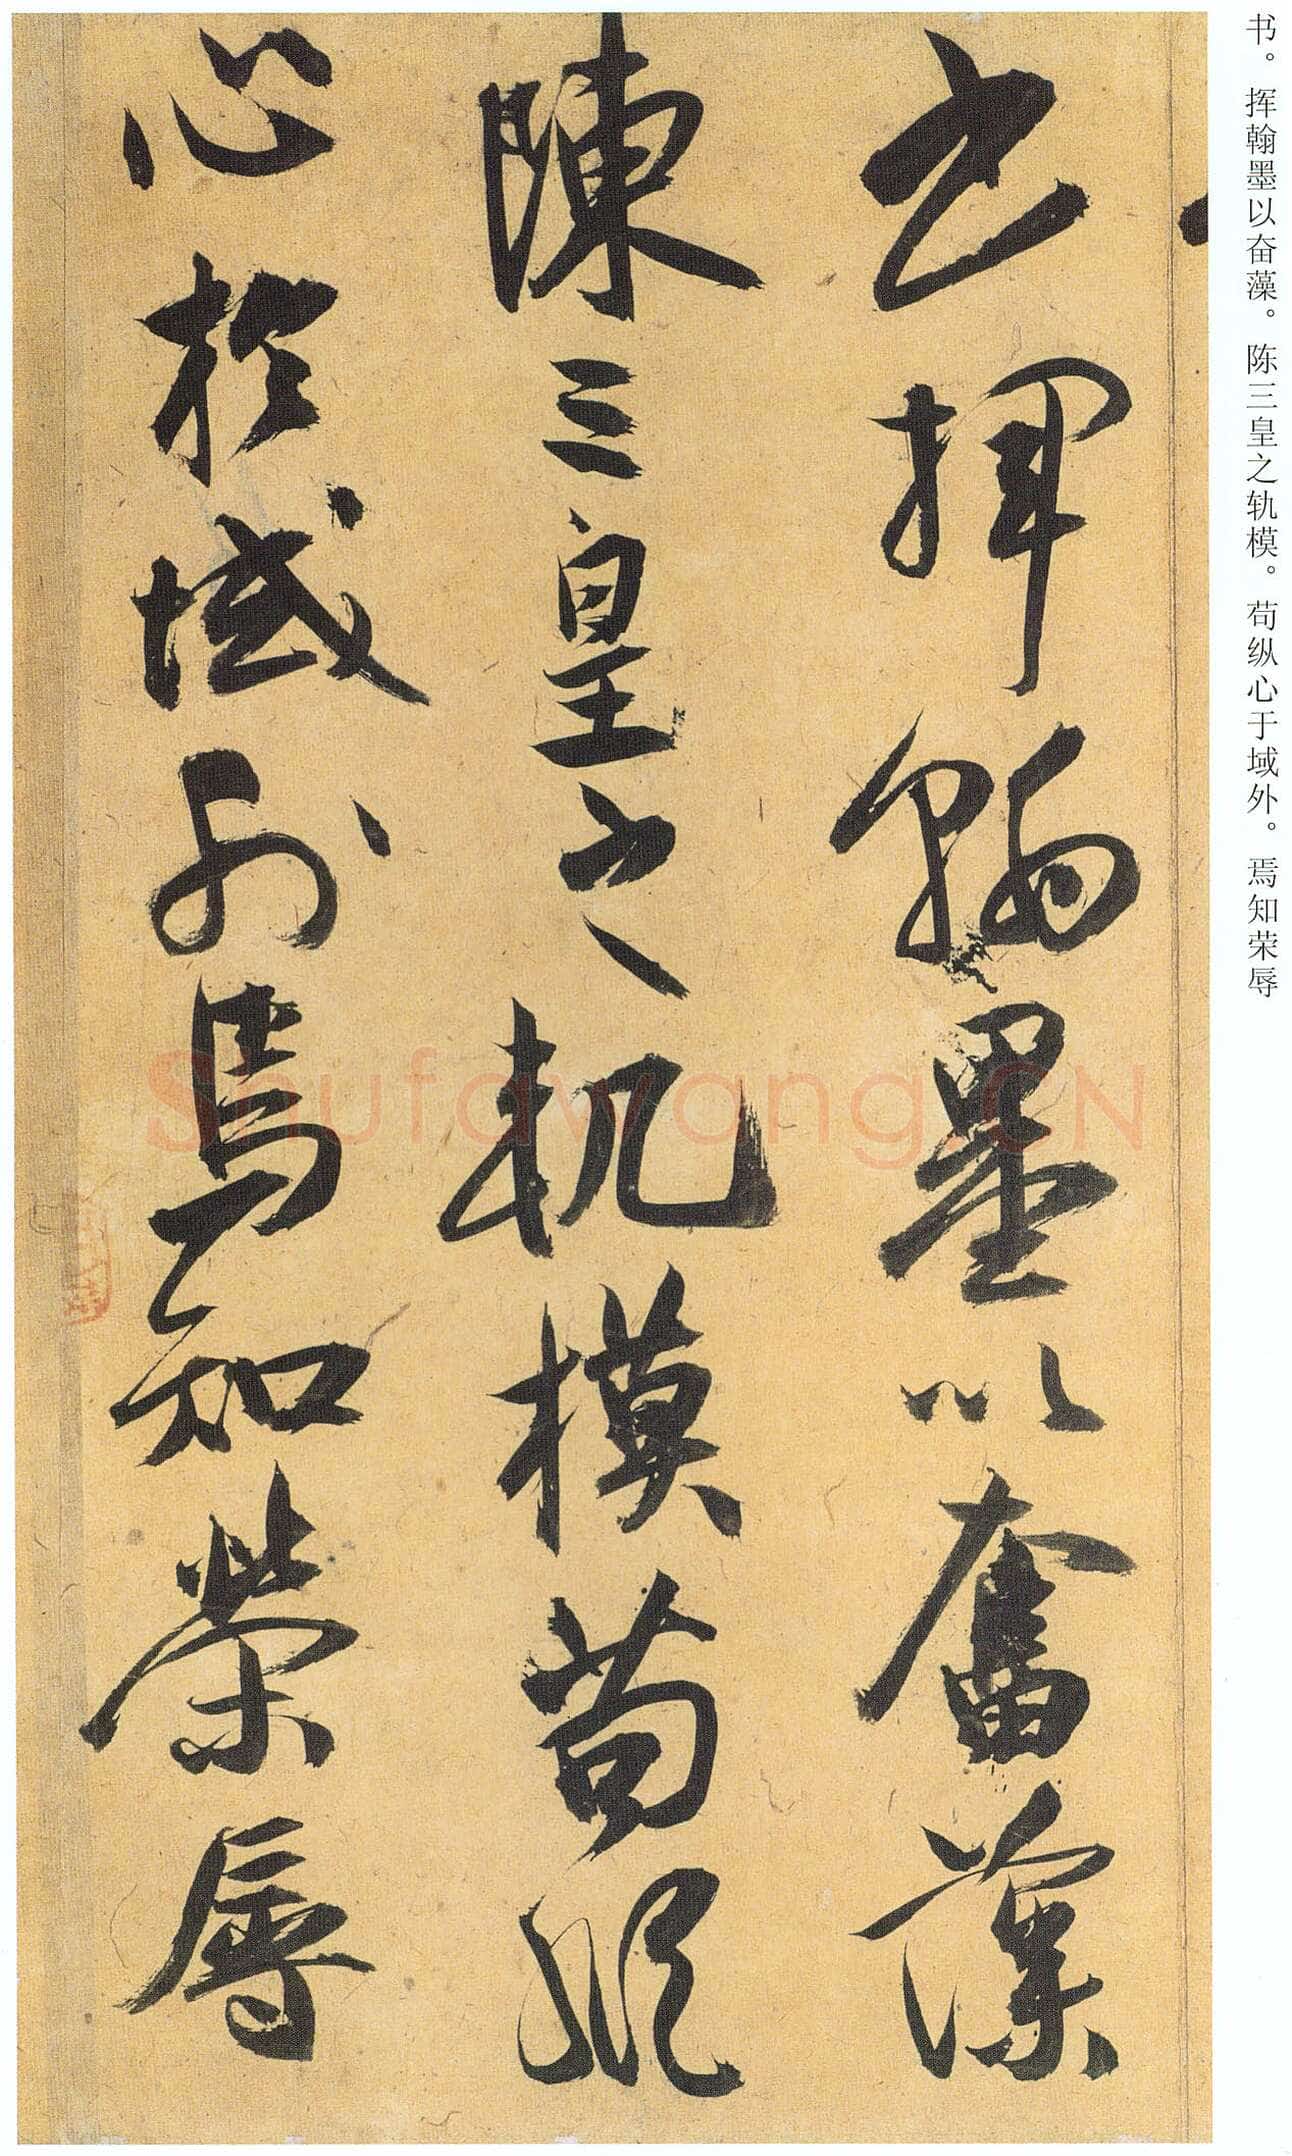 书。挥翰墨以奋藻。陈三皇之轨模。苟纵心于域外。焉知荣辱
书揮翰墨以奮藻
陳三皇之軌模苟縱
心於域外焉知榮辱
Shufawang.CN